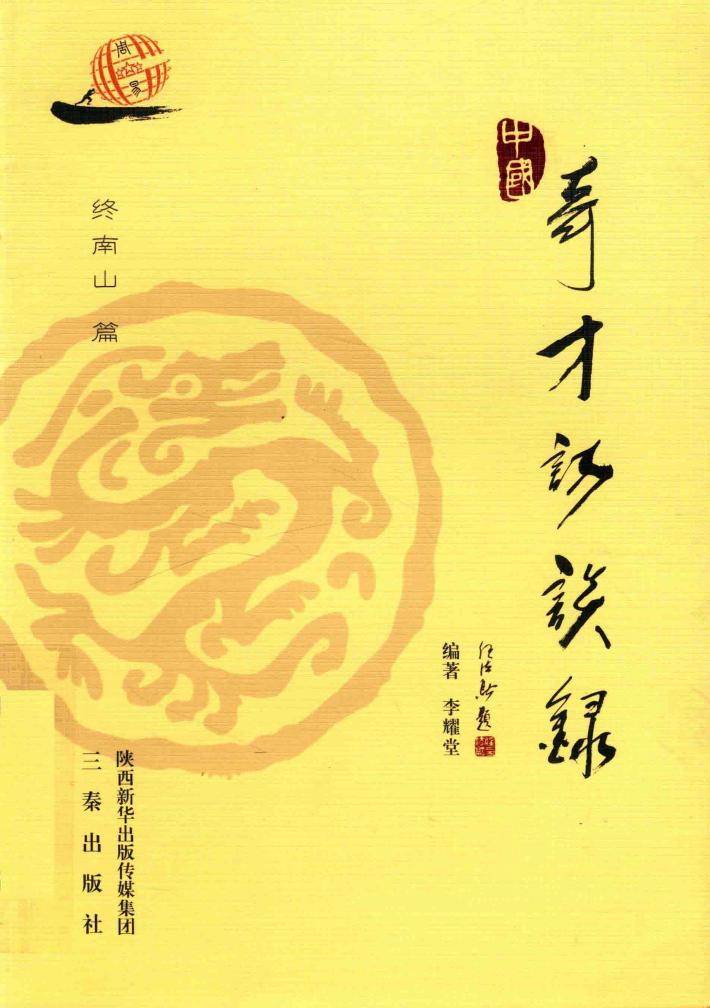 中國
奇才訪談録
编著 李耀堂
终南山 篇
周易
陕西新华出版传媒集团
三秦出版社